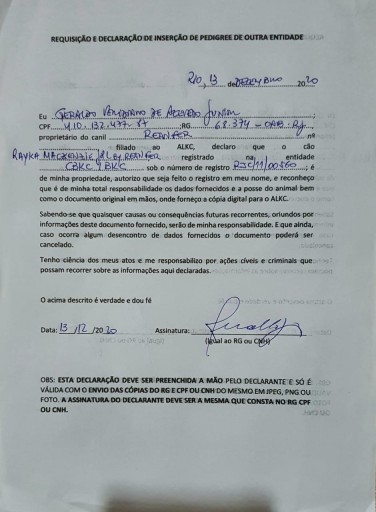 REQUISIÇÃO E DECLARAÇÃO DE INSERÇÃO DE PEDIGREE DE OUTRA ENTIDADE
Rio, 13 de DEZEMBRO 2020
Eu GERALDO DE AZEVEDO JUNIOR
CPF 410.132.477.87 RG 68.374-OAB-RJ, nº
proprietário do canil
filiado ao ALKC, declaro que o cão
RAYKA MACKENZIE registrado na entidade
CBKC / BKC sob o número de registro é
de minha propriedade, autorizo que seja feito o registro em meu nome, e reconheço
que é de minha total responsabilidade os dados fornecidos e a posse do animal bem
como o documento original em mãos, onde forneço a cópia digital para o ALKC.
Sabendo-se que quaisquer causas ou consequências futuras recorrentes, oriundos por
informações deste documento fornecido, serão de minha responsabilidade. E que ainda,
caso ocorra algum desencontro de dados fornecidos o documento poderá ser
cancelado.
Tenho ciência dos meus atos e me responsabilizo por ações cíveis e criminais que
possam recorrer sobre as informações aqui declaradas.
O acima descrito é verdade e dou fé
Data: 13 /12 /2020 Assinatura:
(Igual ao RG ou CNH)
OBS: ESTA DECLARAÇÃO DEVE SER PREENCHIDA A MÃO PELO DECLARANTE E SÓ É
VÁLIDA COM O ENVIO DAS CÓPIAS DO RG E CPF OU CNH DO MESMO EM JPEG, PNG OU
FOTO. A ASSINATURA DO DECLARANTE DEVE SER A MESMA QUE CONSTA NO RG CPF
OU CNH.